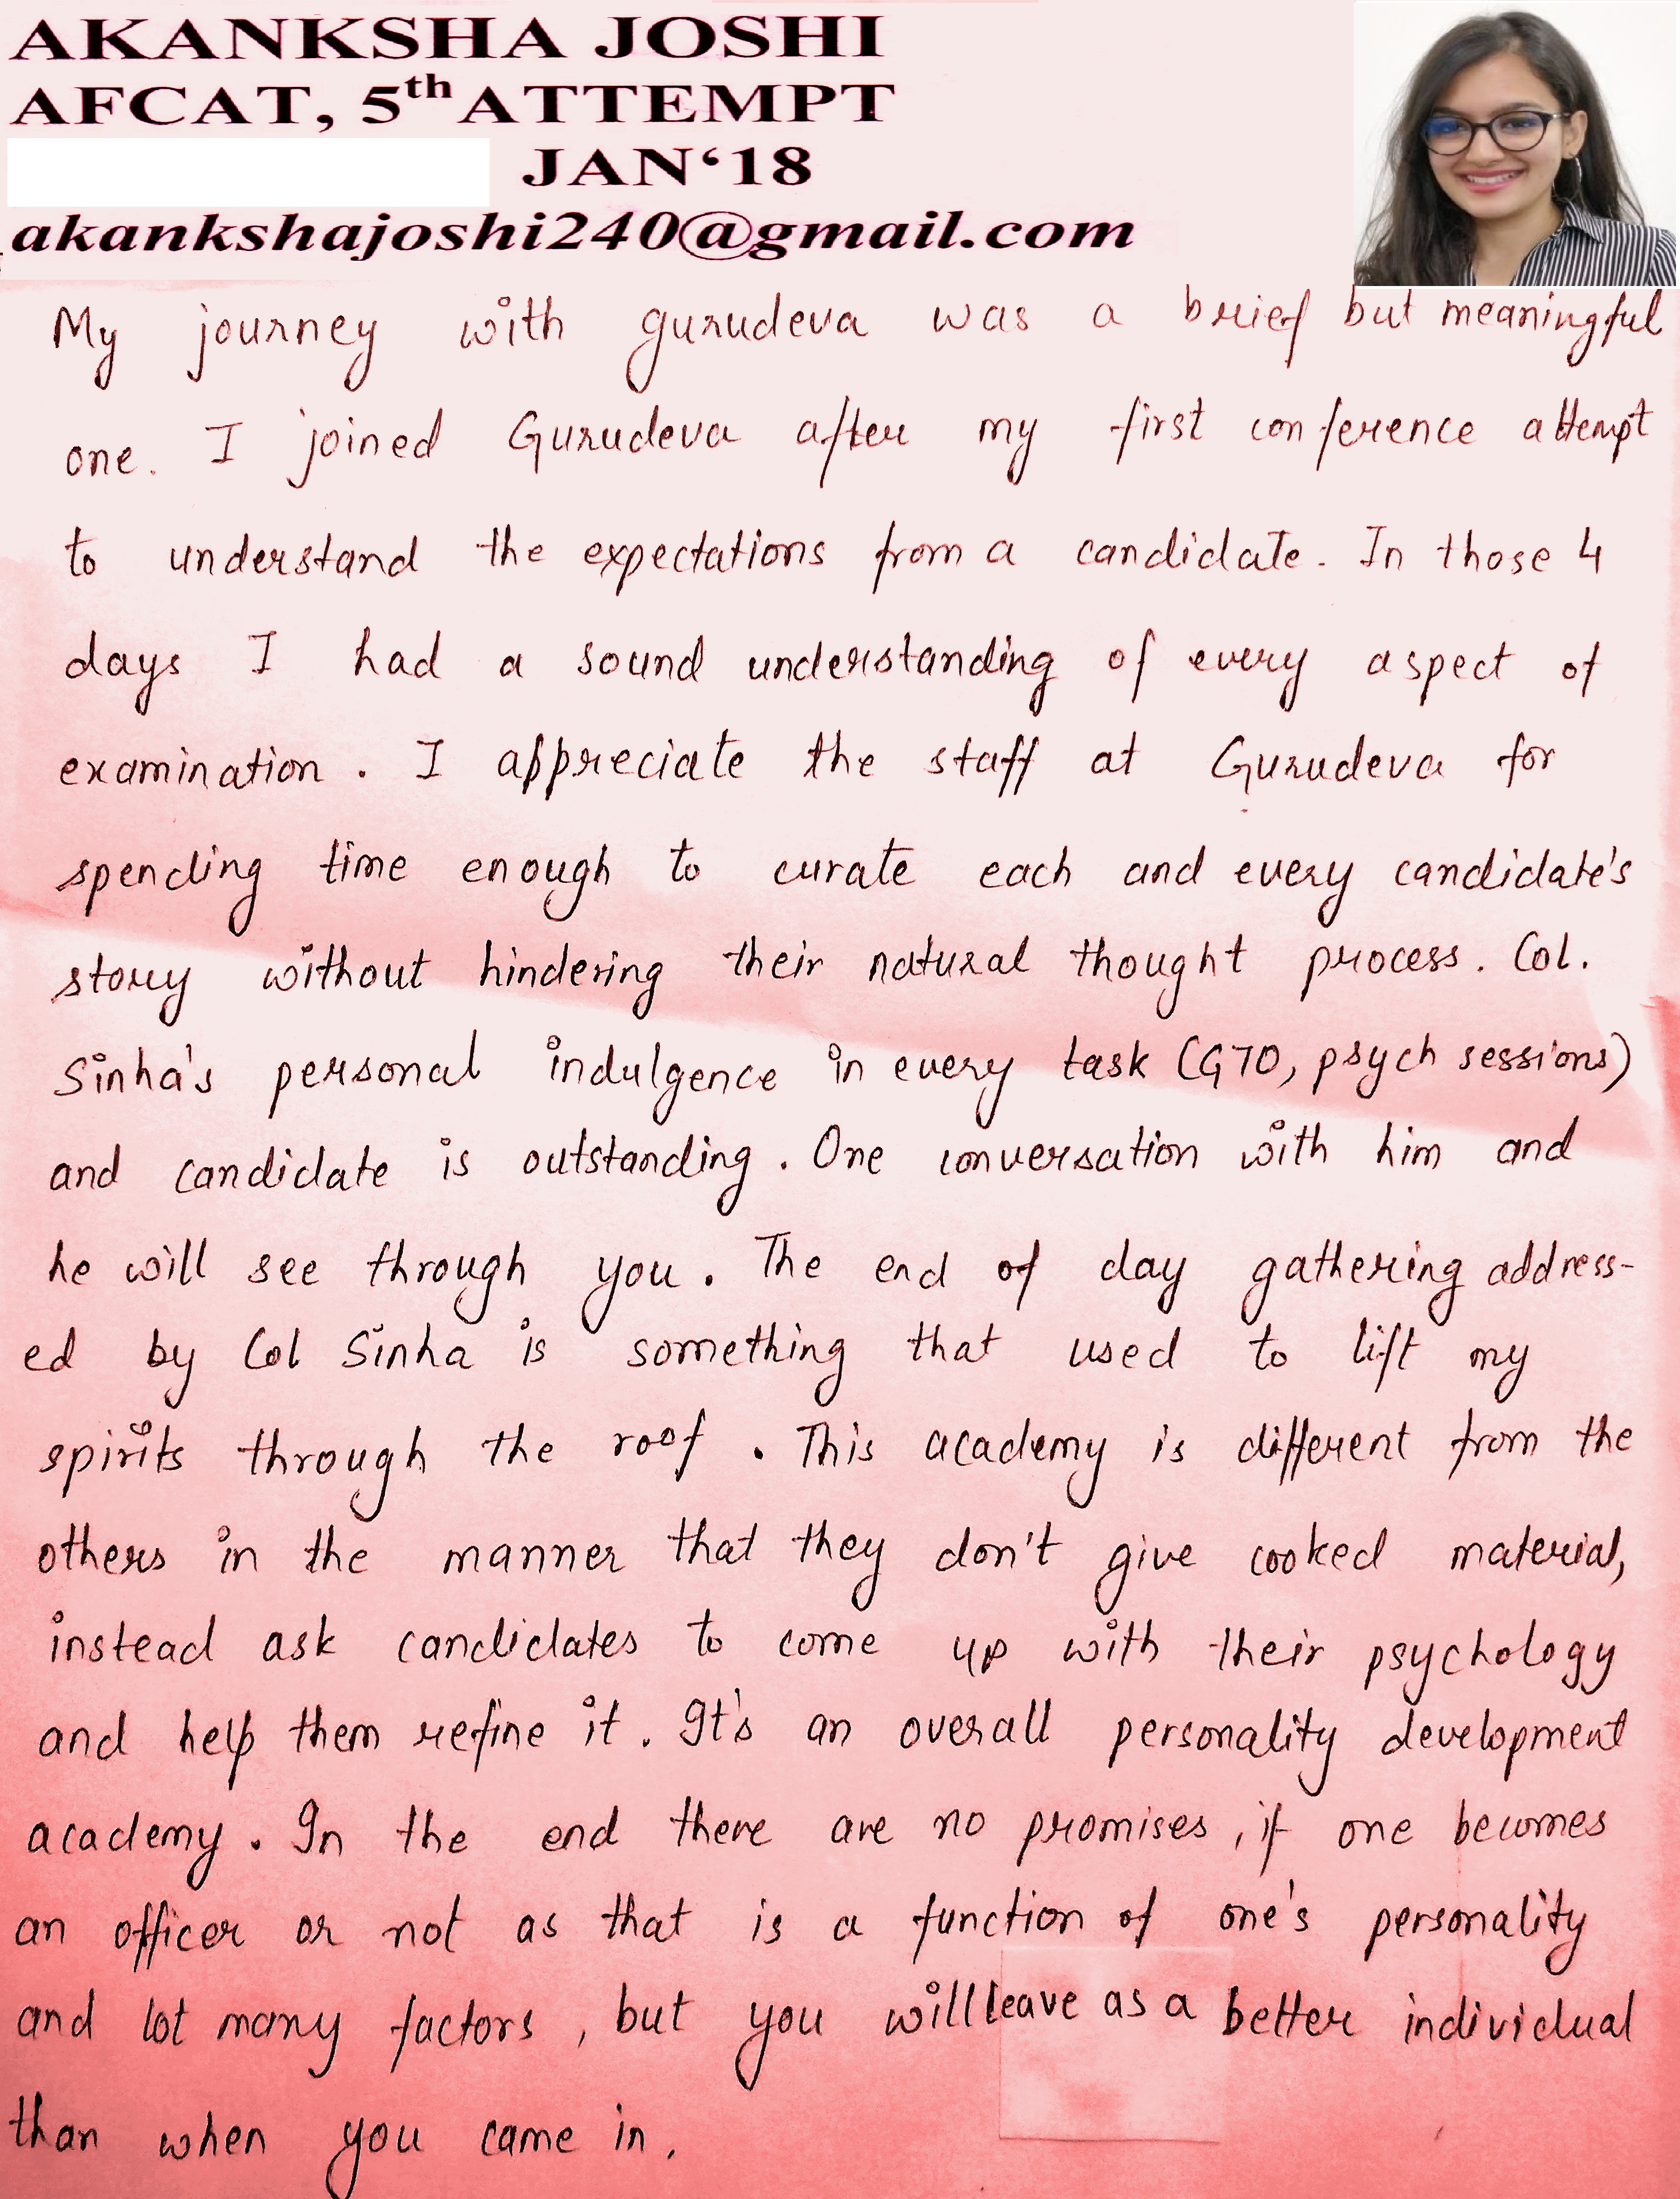 AKANKSHA JOSHI
AFCAT, 5th ATTEMPT
JAN‘18
akankshajoshi240@gmail.com
My journey with gurudeva was a brief but meaningful
one. I joined Gurudeva after my first conference attempt
to understand the expectations from a candidate. In those 4
days I had a sound understanding of every aspect of
examination. I appreciate the staff at Gurudeva for
spending time enough to curate each and every candidate's
story without hindering their natural thought process. Col.
Sinha's personal indulgence in every task (GTO, psych sessions)
and candidate is outstanding. One conversation with him and
he will see through you. The end of day gathering address-
ed by Col Sinha is something that used to lift my
spirits through the roof. This academy is different from the
others in the manner that they don't give cooked material,
instead ask candidates to come up with their psychology
and help them refine it. It's an overall personality development
academy. In the end there are no promises, if one becomes
an officer or not as that is a function of one's personality
and lot many factors, but you will leave as a better individual
than when you came in.